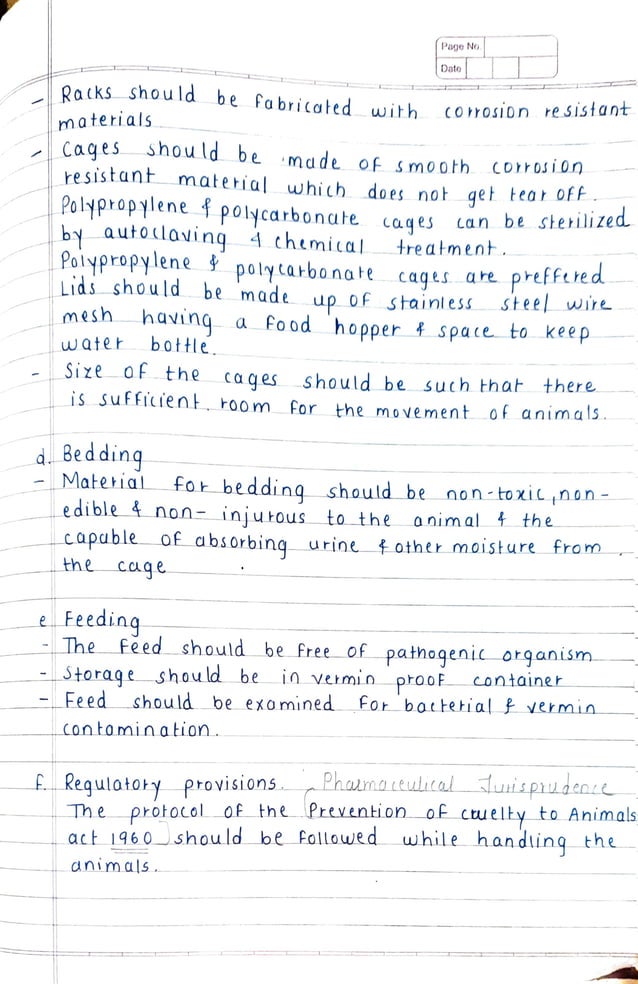 Page No.
Date
- Racks should be fabricated with corrosion resistant
materials
- Cages should be made of smooth corrosion
resistant material which does not get tear off.
Polypropylene & polycarbonate cages can be sterilized
by autoclaving & chemical treatment.
Polypropylene & polycarbonate cages are preffered
Lids should be made up of stainless steel wire
mesh having a food hopper & space to keep
water bottle.
- Size of the cages should be such that there
is sufficient room for the movement of animals.
d. Bedding
- Material for bedding should be non-toxic, non-
edible & non- injurous to the animal & the
capable of absorbing urine & other moisture from
the cage
e Feeding
- The feed should be free of pathogenic organism
- Storage should be in vermin proof container
- Feed should be examined for bacterial & vermin
contamination.
f. Regulatory provisions. Pharmaceutical Jurisprudence
The protocol of the (Prevention of cruelty to Animals
act 1960) should be followed while handling the
animals.